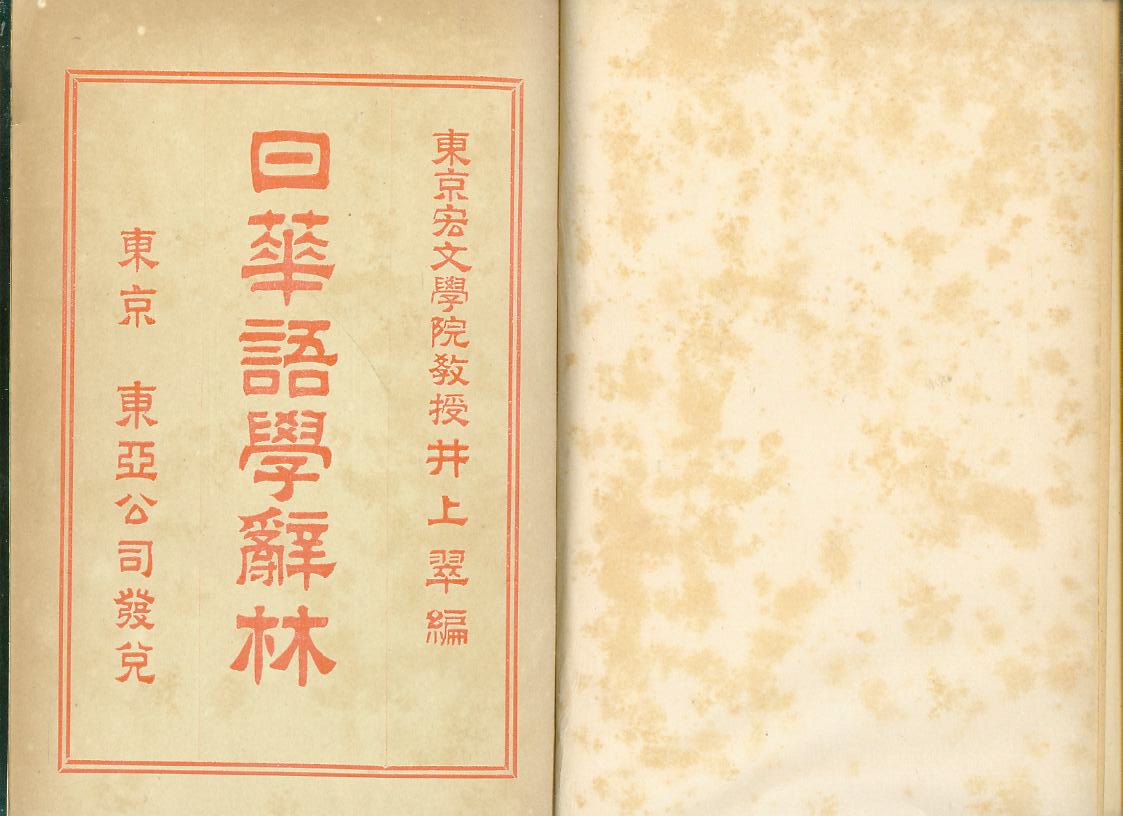 東京宏文學院教授井上翠編
日華語學辭林
東京 東亞公司發兌